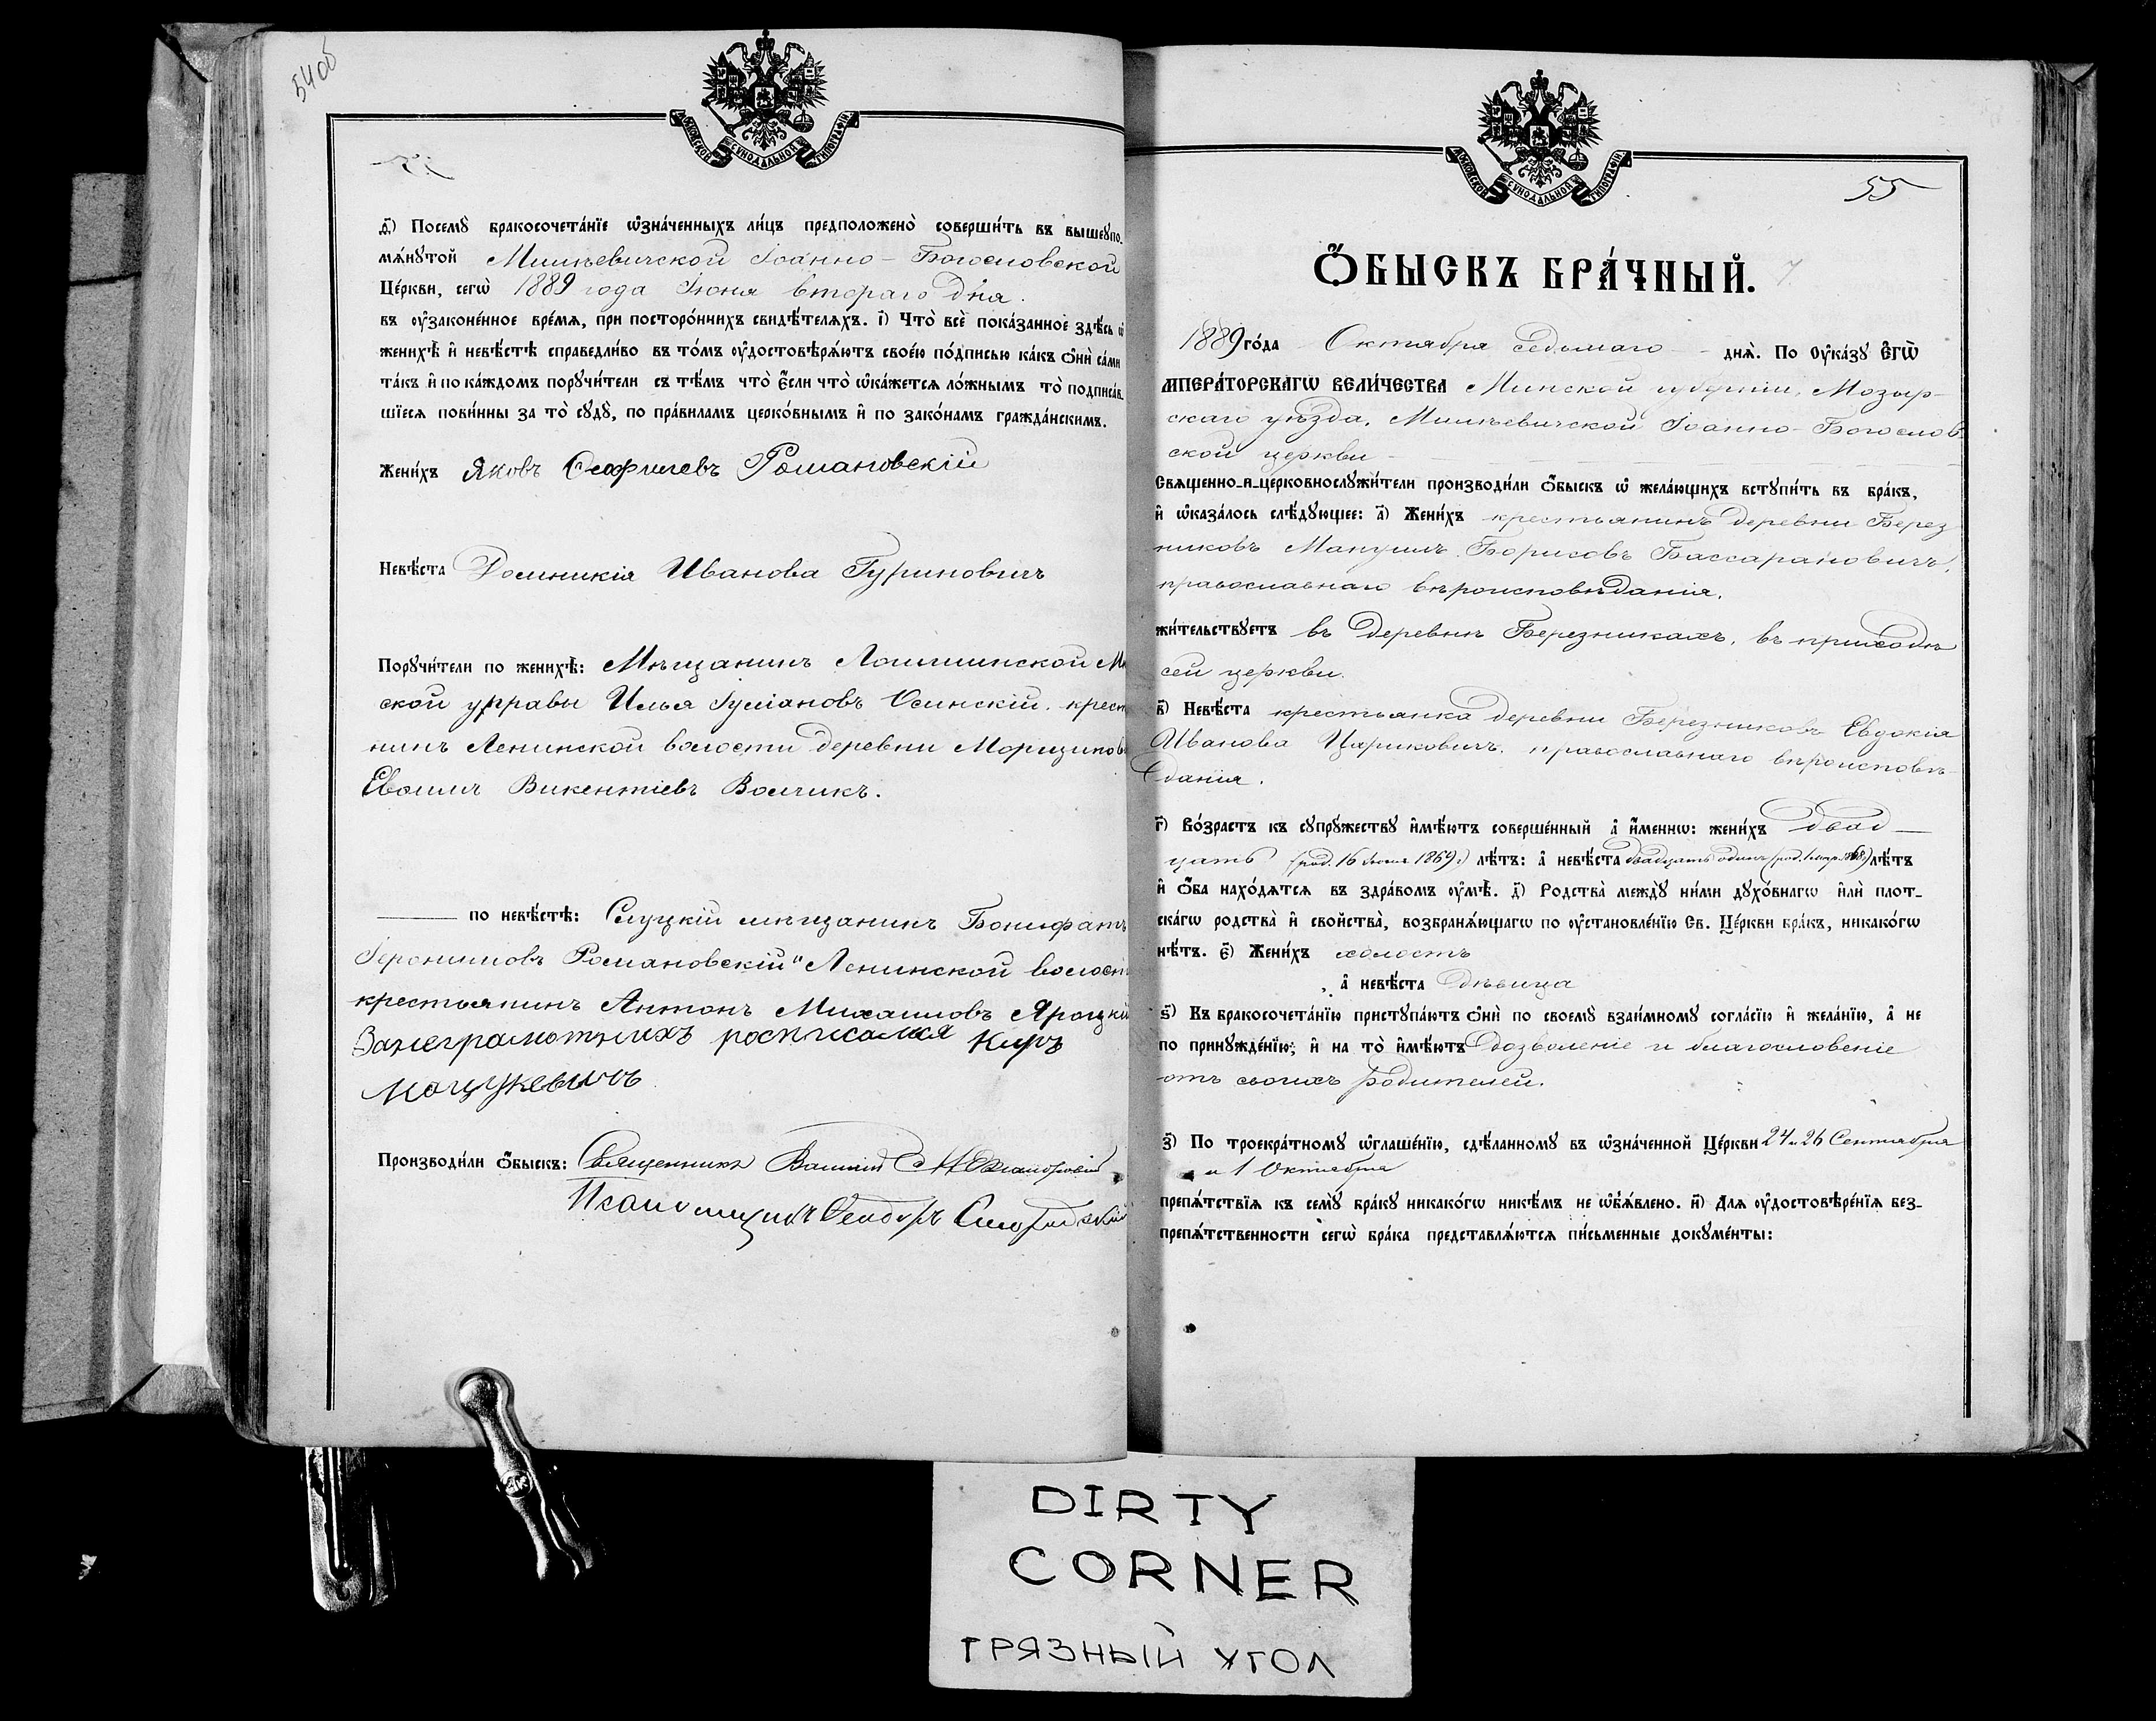 54об
МОСКОВСКОЙ СѴНОДАЛЬНОЙ ТИПОГРАФІИ
д҃і) Посемꙋ̀ бракосочета́нїе ѡ҆зна́ченныхъ ли́цъ предположено̀ соверши́ть въ вышеꙋпо-
мѧ́нꙋтой Мишкевичской Іоанно-Богословской
Це́ркви, сегѡ̀ 1889 года Іюня втораго дня.
въ ѹ҆законе́нное вре́мѧ, при посторо́ннихъ свидѣ́телѧхъ. і҃) Что̀ всѐ пока́занное здѣ́сь ѡ҆
женихѣ̀ и҆ невѣ́стѣ справедли́во въ то́мъ ѹ҆достовѣрѧ́ютъ свое́ю по́дписью ка́къ ѻ҆нѝ са́ми
та́къ и҆ по ка́ждомъ поручи́тели съ тѣ́мъ что̀ є҆́сли что̀ ѡ҆ка́жетсѧ ло́жнымъ то̀ подписа́в-
шїесѧ пови́нны за то̀ сꙋдꙋ̀, по пра́виламъ церко́внымъ и҆ по зако́намъ гражда́нскимъ.
Жени́хъ Яковъ Ѳеофилевъ Романовскій
Невѣ́ста Домникія Иванова Гуриновичъ
Порꙋчи́тели по женихѣ̀: Мѣщанинъ Логишинской
ской управы Илья Іуліановъ Осинскій.
нинъ Ленинской волости деревни
Викентіевъ Волчикъ.
по невѣ́стѣ: Слуцкій мѣщанинъ Бонифатъ
Іеронимовъ Романовскій Ленинской
крестьянинъ Антонъ Михаиловъ
За неграмотныхъ росписался Киръ
Мацукевичъ
Производи́ли ѻ҆́быскъ: Священникъ
Псаломщикъ Ѳеодоръ
МОСКОВСКОЙ СѴНОДАЛЬНОЙ ТИПОГРАФІИ
55
Ѻ҆́БЫСКЪ БРА́ЧНЫЙ. 7
1889 го́да Октября седьмаго днѧ̀. По Оу҆ка́зꙋ Є҆гѡ̀
ИМПЕРА́ТОРСКАГѠ ВЕЛИ́ЧЕСТВА Минской губерніи, Мозыр-
скаго уѣзда, Мишкевичской Іоанно-Богослов-
ской церкви
Свѧщенно-и-церковнослꙋжи́тели производи́ли ѻ҆́быскъ ѡ҆ жела́ющихъ встꙋпи́ть въ бра́къ,
и҆ ѡ҆каза́лось слѣ́дꙋющее: а҃) Жени́хъ крестьянинъ деревни Берез
никовъ Мануилъ Борисовъ Бассарановичъ,
православнаго вѣроисповѣданія,
жи́тельствꙋетъ въ деревнѣ Березникахъ, въ приходѣ
сей церкви.
в҃) Невѣ́ста крестьянка деревни Березниковъ Евдокія
Иванова Цариковичъ, православнаго вѣроисповѣ-
данія.
г҃) Во́зрастъ къ сꙋпрꙋ́жествꙋ и҆мѣ́ютъ соверше́нный а҆ и҆́меннѡ: жени́хъ двад-
цать (род. 16 Іюня 1869.) лѣ́тъ: а҆ невѣ́ста двадцать одинъ (род. 1 мар. 1868) лѣ́тъ
и҆ ѻ҆́ба нахо́дѧтсѧ въ здра́вомъ ѹ҆мѣ̀. д҃) Родства̀ междꙋ̀ ни́ми дꙋхо́внагѡ и҆лѝ плот-
ска́гѡ родства̀ и҆ свойства̀, возбранѧ́ющагѡ по ѹ҆становле́нїю Св. Це́ркви бра́къ, никако́гѡ
нѣ́тъ. є҃) Жени́хъ холостъ
а҆ невѣ́ста дѣвица
ѕ҃) Къ бракосочета́нїю пристꙋпа́ютъ ѻ҆нѝ по своемꙋ̀ взаи́мномꙋ согла́сїю и҆ жела́нїю, а҆ не
по принꙋжде́нїю; и҆ на то̀ и҆мѣ́ютъ дозволеніе и благословеніе
отъ своихъ родителей.
з҃) По троекра́тномꙋ ѡ҆глаше́нїю, сдѣ́ланномꙋ въ ѡ҆зна́ченной Це́ркви 24 и 26 Сентября
и 1 Октября
препѧ́тствїѧ къ семꙋ̀ бра́кꙋ никако́гѡ никѣ́мъ не ѡ҆б̾ѧ́влено. и҃) Длѧ ѹ҆достовѣре́нїѧ без-
препѧ́тственности сегѡ̀ бра́ка представлѧ́ютсѧ пи́сьменные докꙋме́нты:
DIRTY
CORNER
ГРЯЗНЫЙ УГОЛ